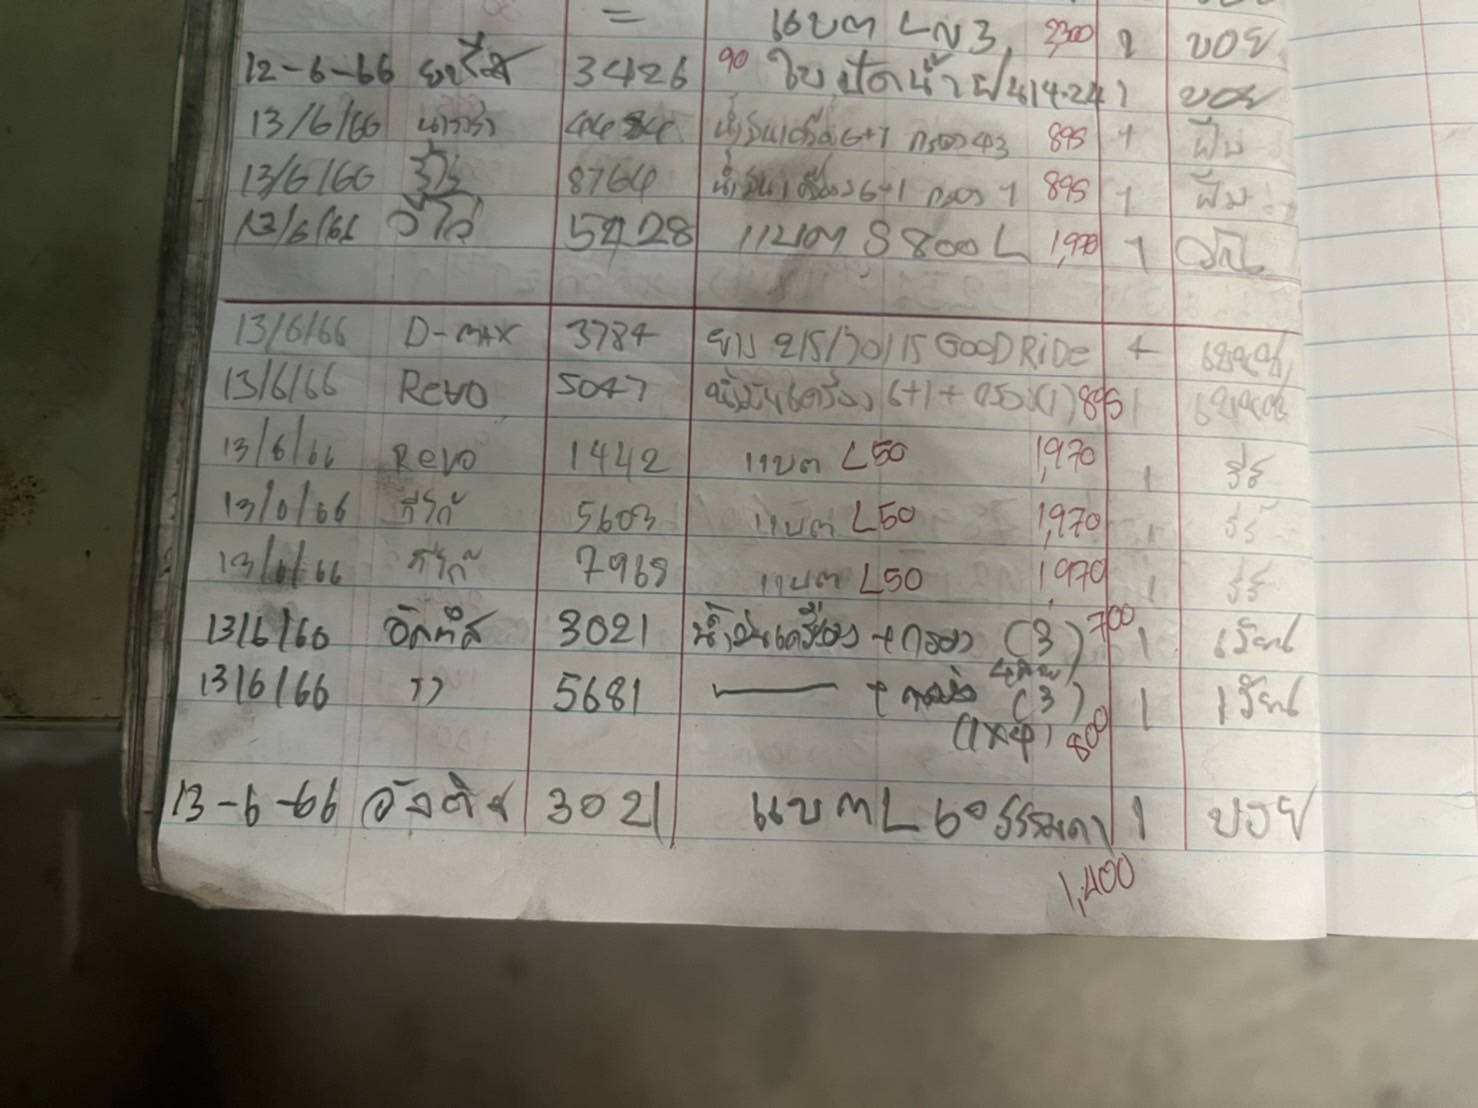 = แบต LN3 2300 2 บอย
12-6-66 ยาริส 3426 90 ใบปัดน้ำฝน 14-24 1 บอย
13/6/66 นาวาร่า น้ำมันเครื่อง 6+1 กรอง 43 895 1 ฟิม
13/6/66 วีโก้ 8764 น้ำมันเครื่อง 6+1 กรอง 1 895 1 ฟิม
13/6/66 วีโก้ 5428 แบต S 800L 1,970 1
13/6/66 D-MAX 3784 ยาง 215/70/15 GOODRIDE 4
13/6/66 Revo 5047 น้ำมันเครื่อง 6+1+กรอง(1) 895 1
13/6/66 Revo 1442 แบต L50 1,970 1
13/6/66 วีโก้ 5603 แบต L50 1,970 1
13/6/66 วีโก้ 7969 แบต L50 1,970 1
13/6/66 อัลติส 3021 น้ำมันเครื่อง + กรอง (3) 700 1 เรียน
13/6/66 " 5681 — + กรอง (3) 1 เรียน
800
13-6-66 อัลติส 3021 แบต L 60 ธรรมดา 1 บอย
1,400